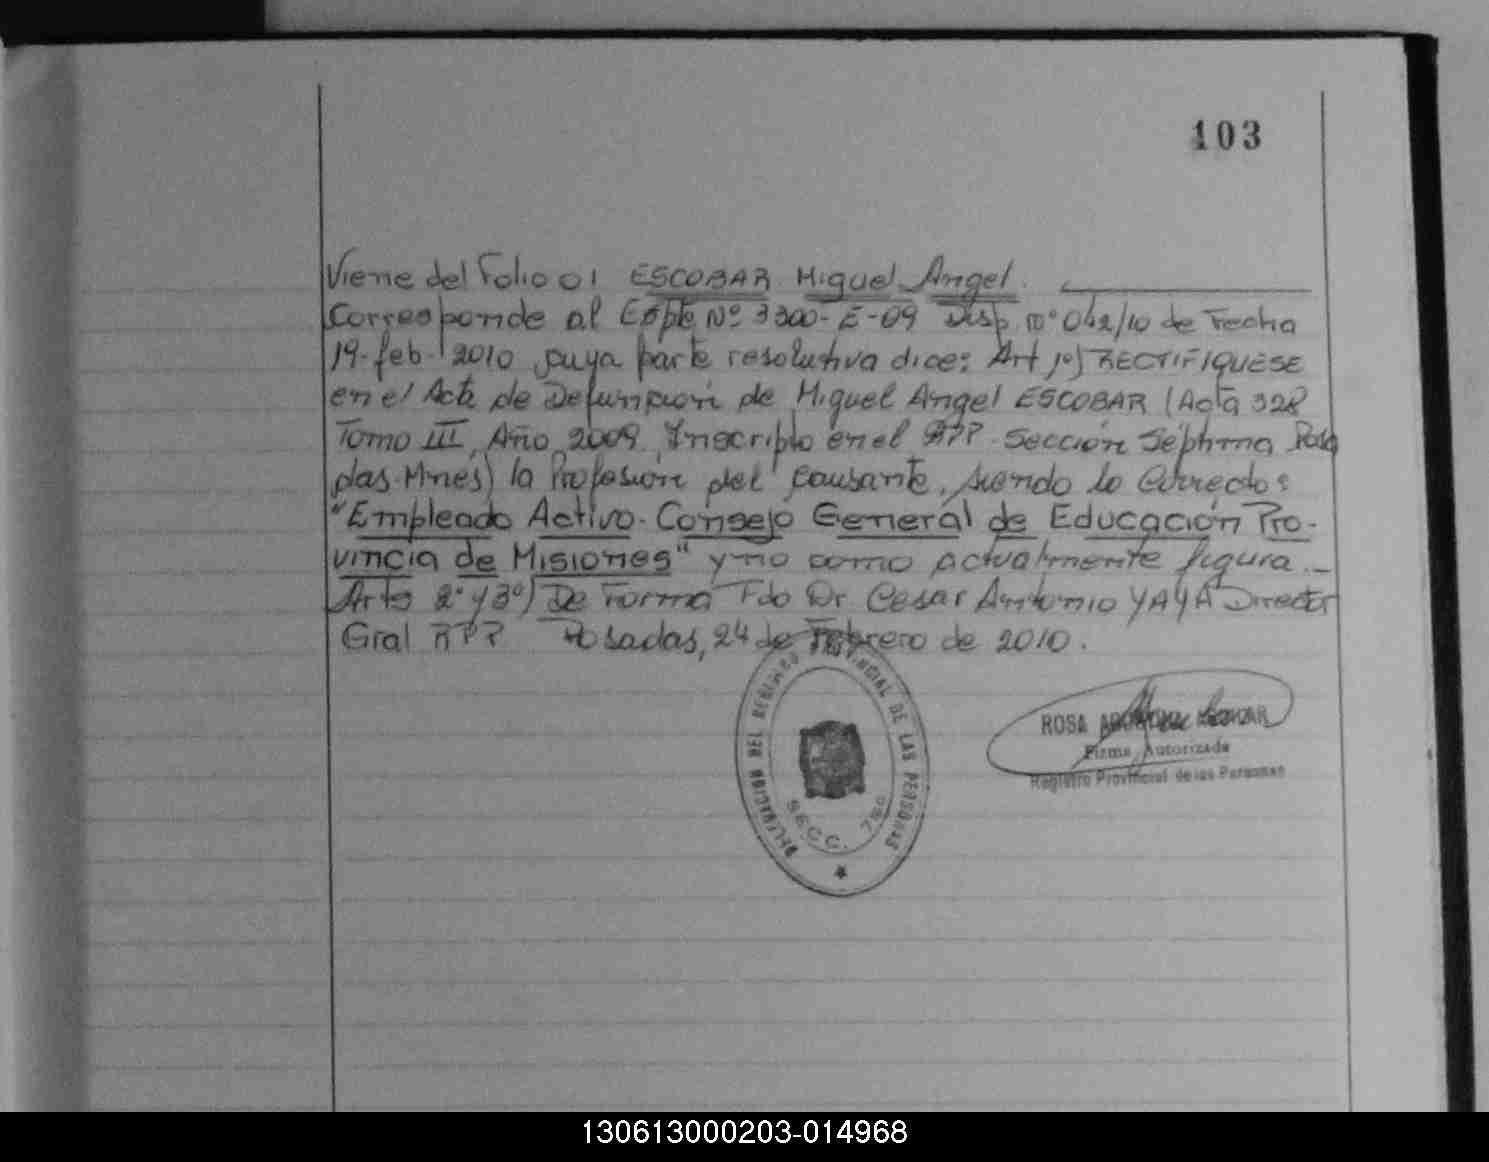 103
Viene del Folio 01 ESCOBAR Miguel Angel.
Corresponde al Expte Nº 3300-E-09 Disp nº 042/10 de Fecha
19-feb-2010 cuya parte resolutiva dice: Art 1º) RECTIFIQUESE
en el Acta de Defunción de Miguel Angel ESCOBAR (Acta 328
Tomo III, Año 2009, Inscripto en el RPP. Sección Séptima Posa
das-Mnes) la Profesión del causante, siendo lo Correcto:
"Empleado Activo-Consejo General de Educación Pro-
vincia de Misiones" y no como actualmente figura.-
Arts 2º y 3º) De Forma Fdo Dr. Cesar Antonio YAYA Director
Gral RPP Posadas, 24 de Febrero de 2010.
DELEGACION DEL REGISTRO PROVINCIAL DE LAS PERSONAS
SECC. 7ma
ROSA
Firma Autorizada
Registro Provincial de las Personas
130613000203-014968